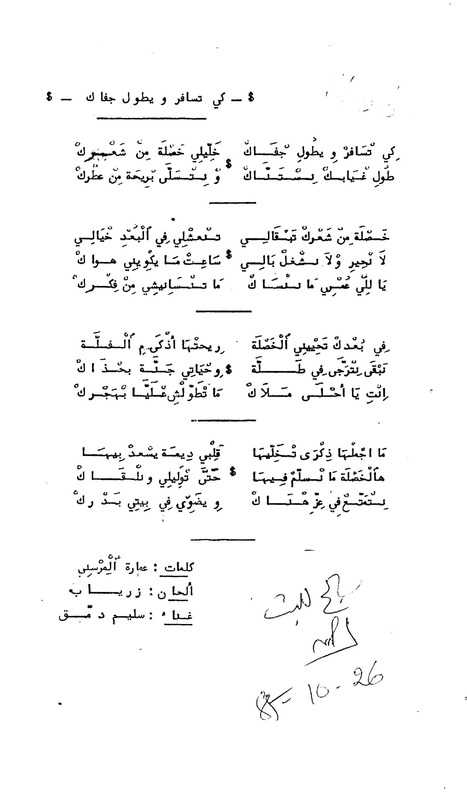 $ ــ كي تسافر و يطول جفاك ــ $
كِي تْسَافَرْ و يطُولِ جْفَاكْ خَلِّيلِي خَصْلَة مِنْ شَعْرِكْ
طُول غْيَابِكْ نِسْتَنَّاكْ $ وْ نِتْسَلَّى بْرِيحَة مِن عِطْرِكْ
خَصْلَة مِنْ شَعْرِكْ تَبْقَالِي تنعْشْلِي فِي الْبُعْدِ خَيَالِي
لاَ نْحِير وْلاَ نِشْغَلْ بَالِي $ سَاعِتْ مَا يكْوِينِي هواكْ
يَا للِّي عُمْرِي مَا نَنْسَاكْ مَا تنْسَانِيشِي مِنْ فِكْرِكْ
فِي بُعْدِكْ تَحْيِينِي الْخَصْلَة رِيحتْهَا أَذْكَى مِ الْفلَّة
نَبْقَى نِتْرَجَّى فِي طَلَّة $ وْحَيَاتِي جَنَّة بحْذَاكْ
اِنْتِ يَا أَحْلَى مَلاَكْ مَا تْطَوِّلْشِ عْلَيَّا بْهَجْرِكْ
مَا اجْمَلْهَا ذِكْرَى تْخَلِّيهَا قَلْبِي دِيمَة يِسْعدْ بِيهَا
هَالْخَصْلَة مَا نْسَلّمْ فِيهَا $ حَتَّى تْوَلِّيلِي ونلْقَاكْ
نِتْمَتَّعْ فِي عِزّ هْنَاكْ و يضَوِّي فِي بِيتِي بَدْرِكْ
كلمات : عمارة الْمِرْسنِي
ألحان : زرياب
غناء : سليم دمّق
صالح للبث
26 - 10 - 85